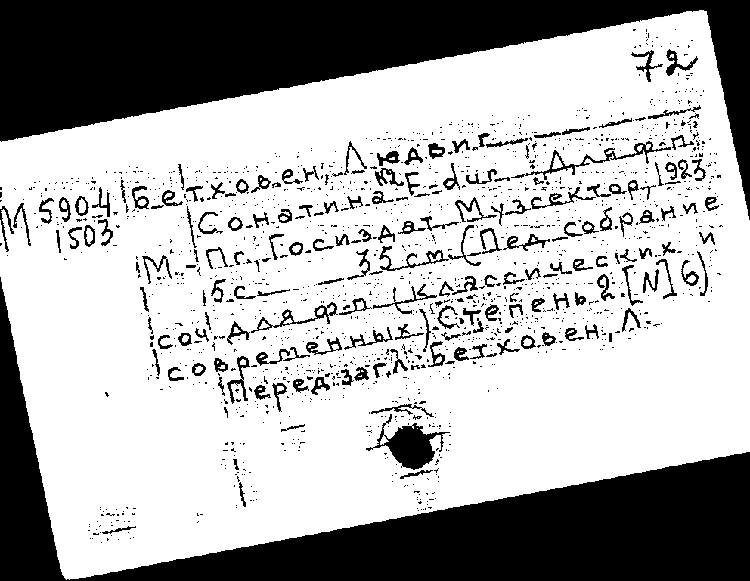 72
М 5904
1503
Бетховен, Людвиг
Сонатина №2 F-dur Для ф-п.
М.-Пг., Госиздат Музсектор, 1923
5с. 35 см. (Пед. собрание
соч. для ф-п (классических и
современных) Степень 2. [N] 6)
Перед загл.: Бетховен, Л.